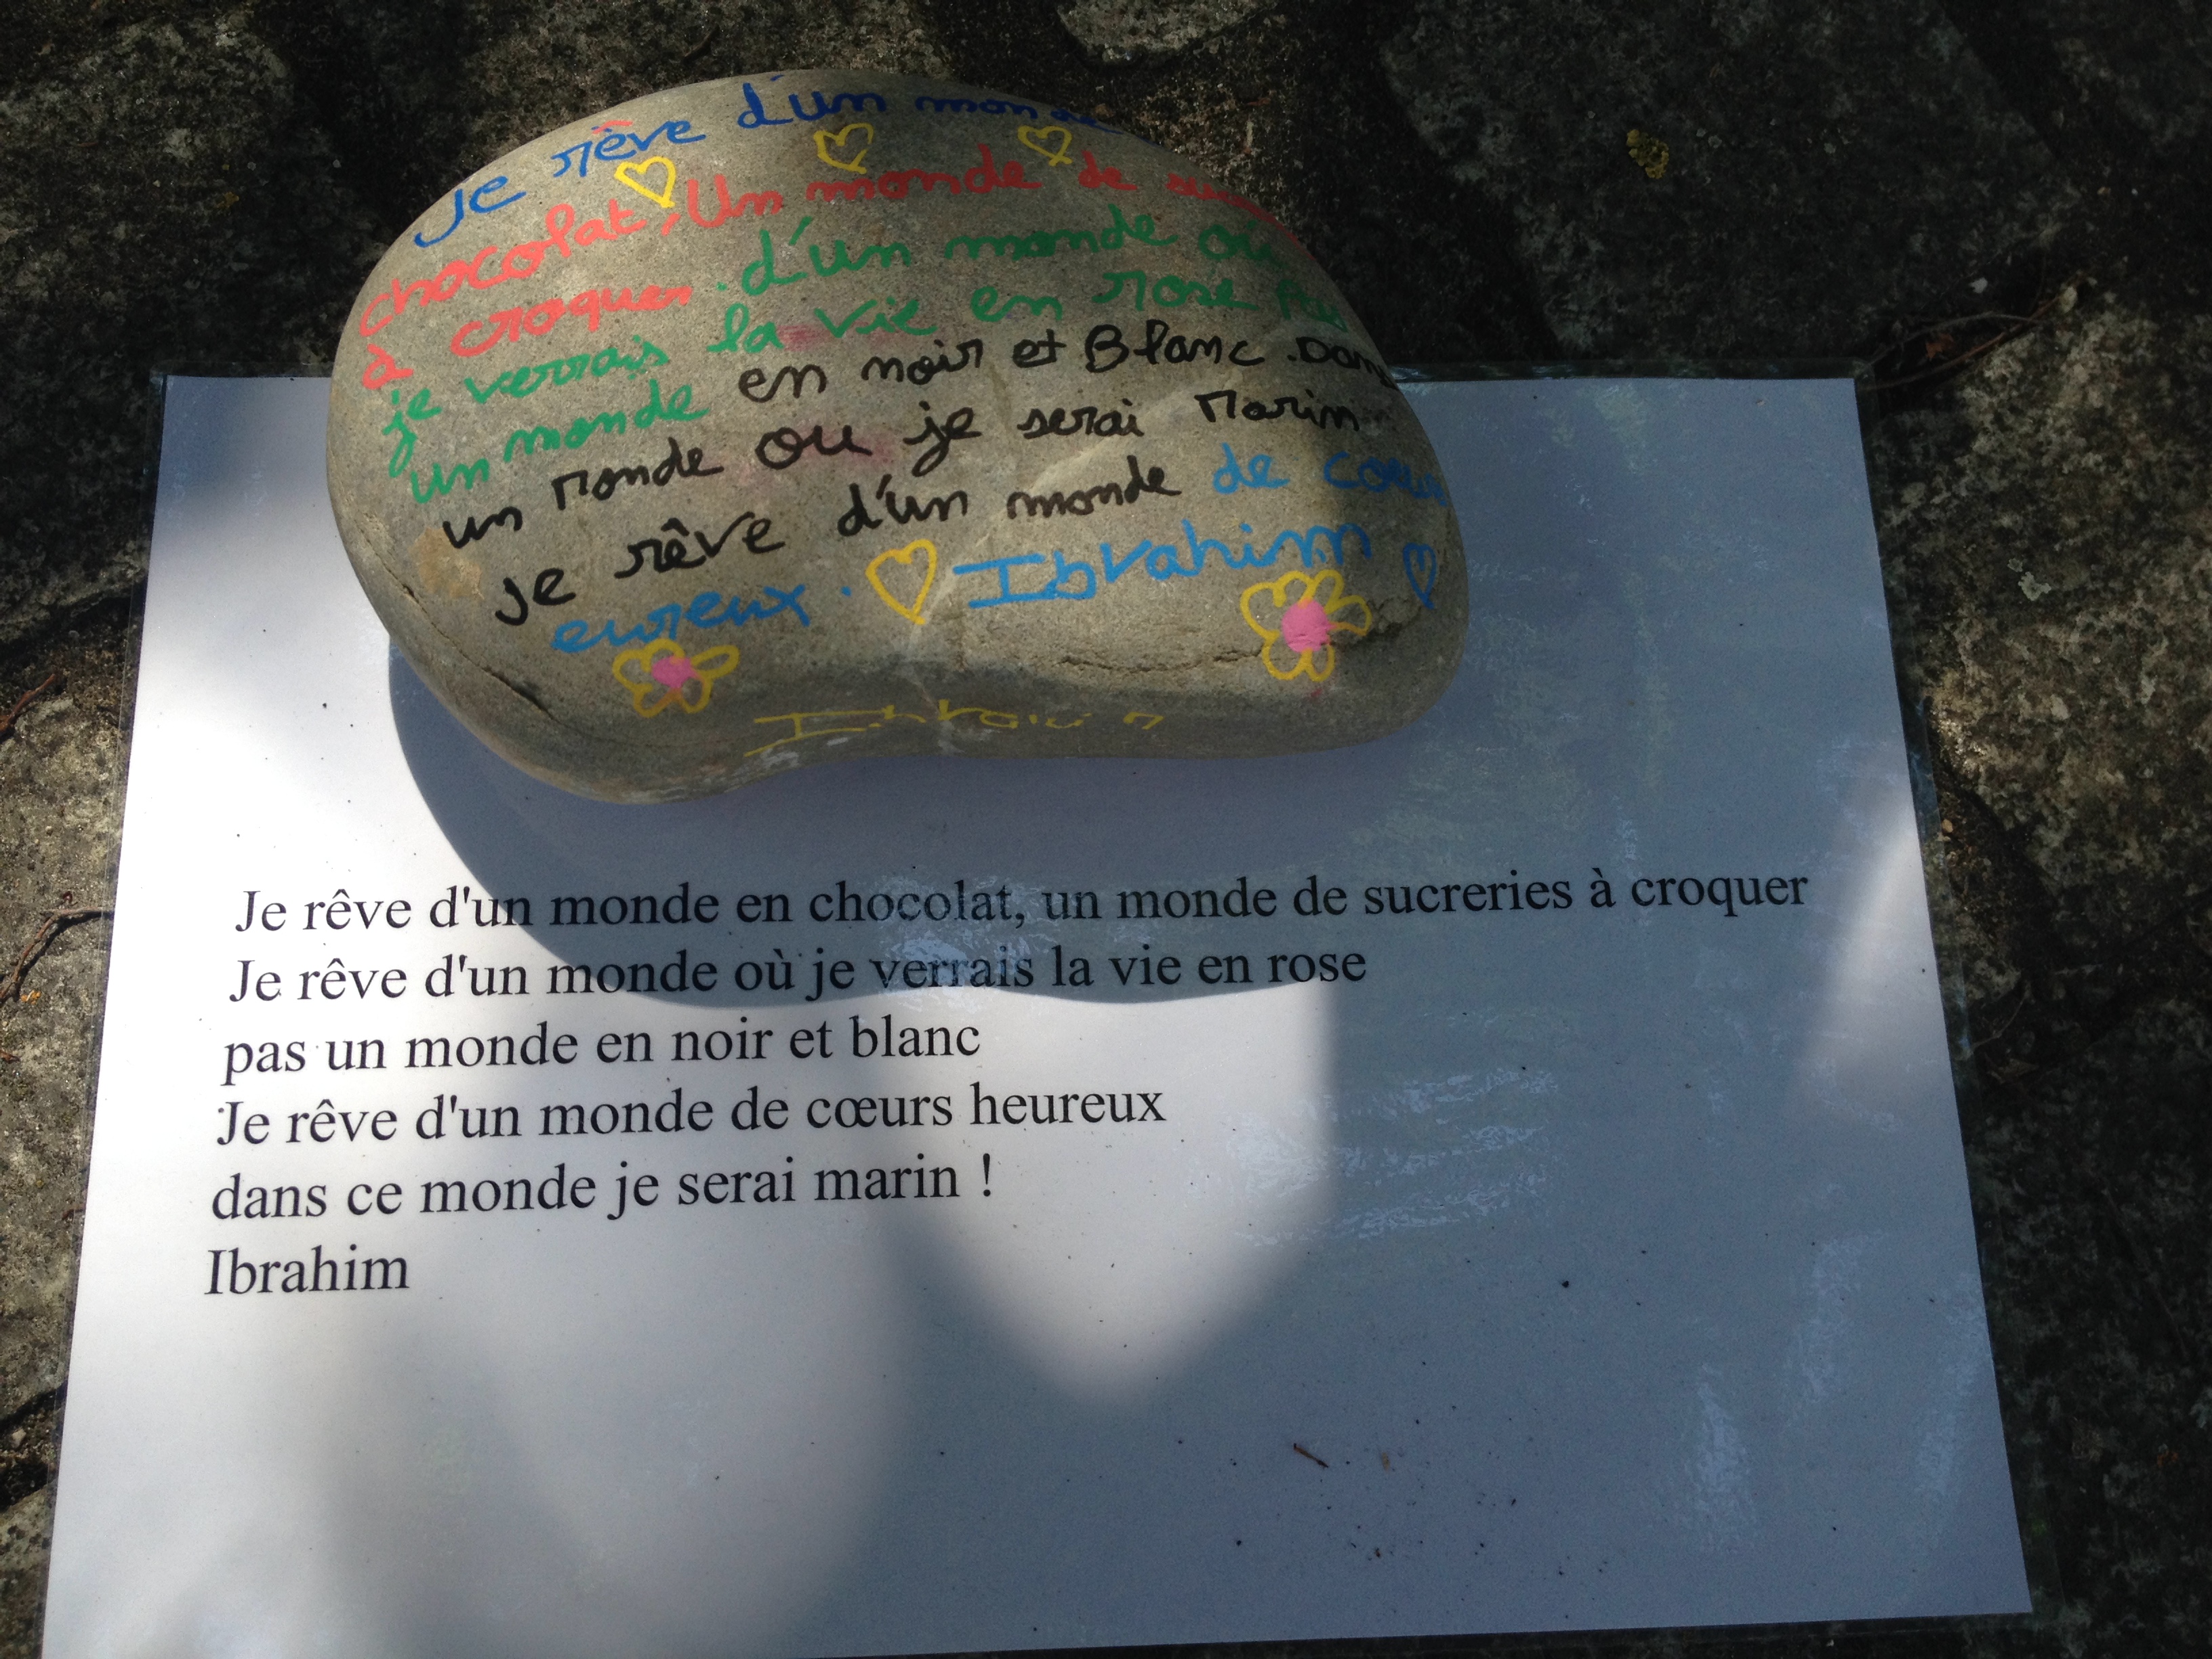 Je rêve d'un monde
chocolat, Un monde de
à croquer. d'un monde où
je verrais la vie en rose Pas
un monde en noir et Blanc. Dans
un Monde ou je serai Marin
je rêve d'un monde de coeur
eureux. Ibrahim
Je rêve d'un monde en chocolat, un monde de sucreries à croquer
Je rêve d'un monde où je verrais la vie en rose
pas un monde en noir et blanc
Je rêve d'un monde de cœurs heureux
dans ce monde je serai marin !
Ibrahim